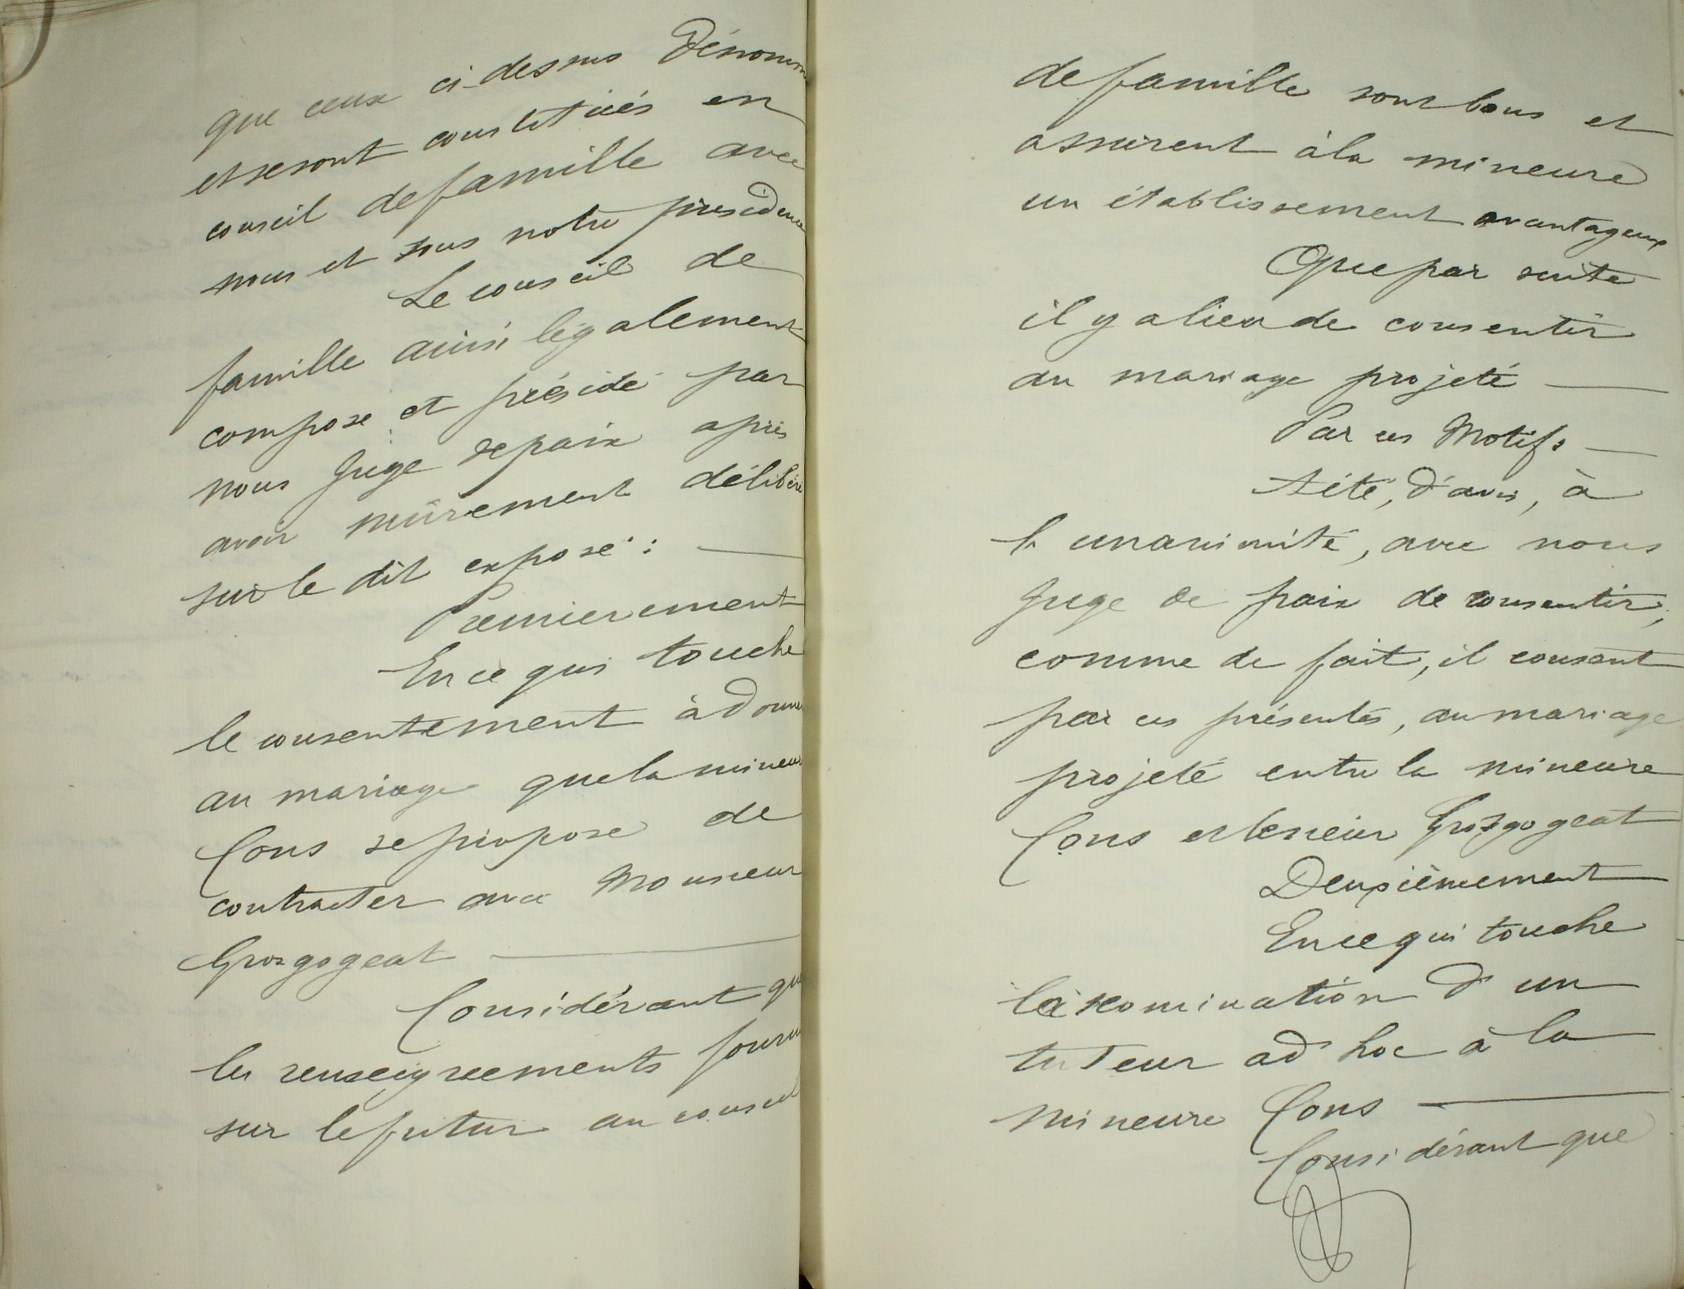 que ceux ci-dessus Dénomm
et se sont constitués en
conseil de famille avec
nous et sous notre présidence
Le conseil de
famille ainsi légalement
composé et présidé par
nous Juge de paix après
avoir mûrement délibéré
sur le dit exposé :
Premièrement
En ce qui touche
le consentement à donner
au mariage que la mineure
Cons se propose de
contracter avec Monsieur
Grosgogeat
Considérant que
les renseignements fournis
sur le futur au conseil
de famille sont bons et
assurent à la mineure
un établissement avantageux
Que par suite
il y a lieu de consentir
au mariage projeté
Par ces Motifs
A été, d'avis, à
l'unanimité, avec nous
Juge de paix de consentir,
comme de fait, il consent
par ces présentes, au mariage
projeté entre la mineure
Cons et le sieur Grosgogeat
Deuxièmement
En ce qui touche
la nomination d'un
tuteur ad hoc à la
mineure Cons
Considérant que